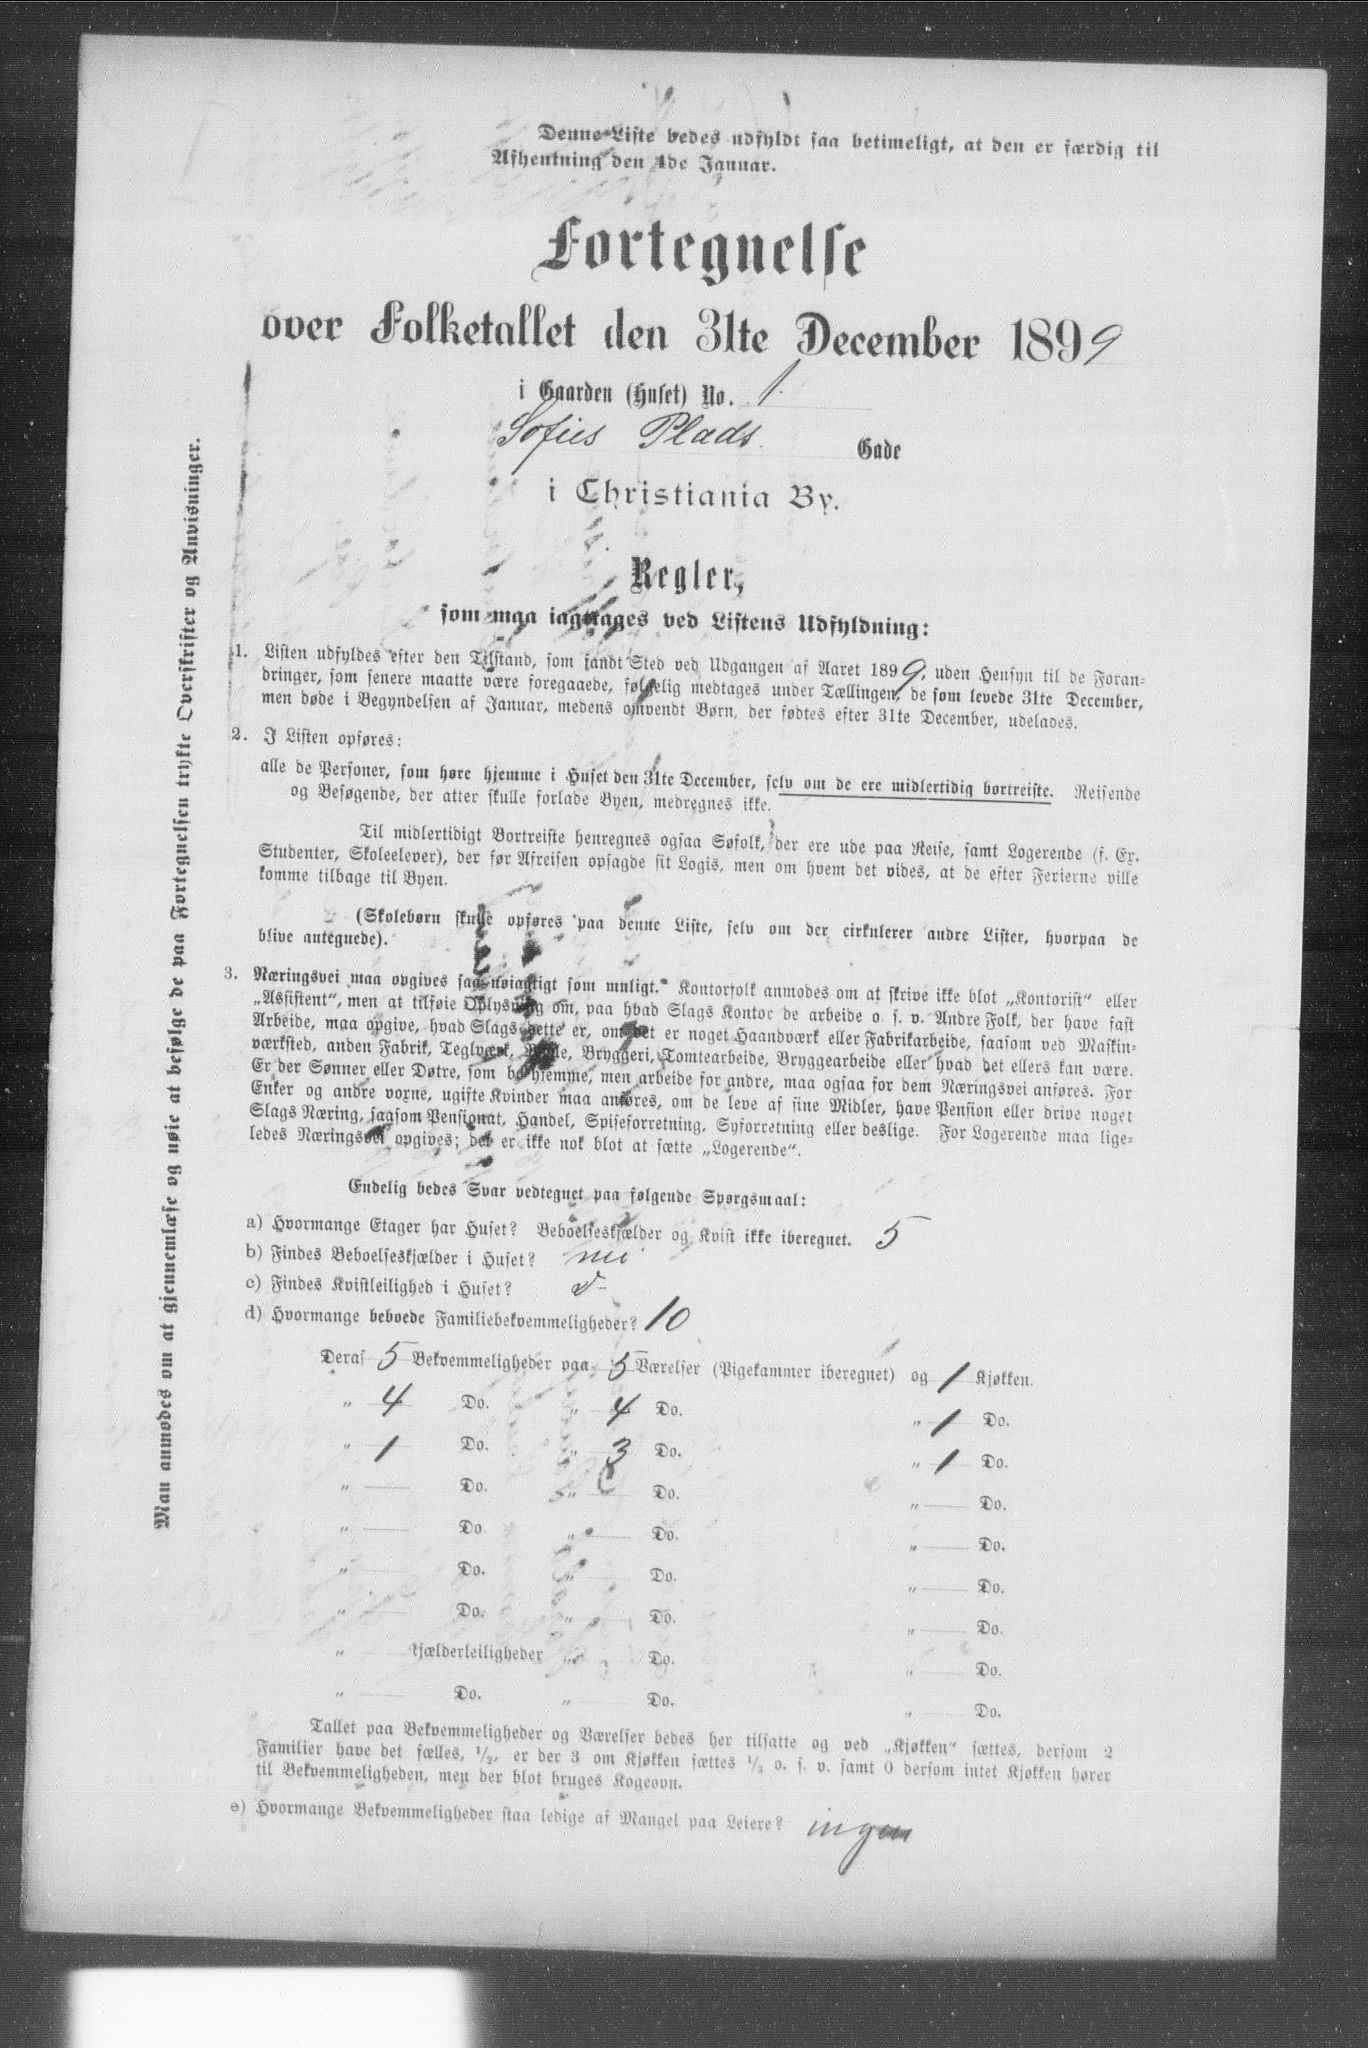 Denne Liste bedes udfyldt saa betimeligt, at den er færdig til
Afhentning den 4de Januar.
Fortegnelse
over Folketallet den 31te December 1899
i Gaarden (Huset) No. 1
Sofies Plads Gade
i Christiania By.
Regler,
som maa iagttages ved Listens Udfyldning:
1. Listen udfyldes efter den Tilstand, som fandt Sted ved Udgangen af Aaret 1899, uden Hensyn til de Foran-
dringer, som senere maatte være foregaaede, følgelig medtages under Tællingen, de som levede 31te December,
men døde i Begyndelsen af Januar, medens omvendt Børn, der fødtes efter 31te December, udelades.
2. I Listen opføres:
alle de Personer, som høre hjemme i Huset den 31te December, selv om de ere midlertidig bortreiste. Reisende
og Besøgende, der atter skulle forlade Byen, medregnes ikke.
Til midlertidigt Bortreiste henregnes ogsaa Søfolk, der ere ude paa Reise, samt Logerende (f. Ex.
Studenter, Skoleelever), der før Afreisen opsagde sit Logis, men om hvem det vides, at de efter Ferierne ville
komme tilbage til Byen.
(Skolebørn skulle opføres paa denne Liste, selv om der cirkulerer andre Lister, hvorpaa de
blive antegnede).
3. Næringsvei maa opgives saa nøiagtigt som muligt. Kontorfolk anmodes om at skrive ikke blot „Kontorist“ eller
„Assistent“, men at tilføie Oplysning om, paa hvad Slags Kontor de arbeide o. s. v. Andre Folk, der have fast
Arbeide, maa opgive, hvad Slags dette er, om det er noget Haandværk eller Fabrikarbeide, saasom ved Maskin-
værksted, anden Fabrik, Teglværk, Mølle, Bryggeri, Tomtearbeide, Bryggearbeide eller hvad det ellers kan være.
Er der Sønner eller Døtre, som bo hjemme, men arbeide for andre, maa ogsaa for dem Næringsvei anføres. For
Enker og andre voxne, ugifte Kvinder maa anføres, om de leve af sine Midler, have Pension eller drive noget
Slags Næring, saasom Pensionat, Handel, Spiseforretning, Syforretning eller deslige. For Logerende maa lige-
ledes Næringsvei opgives; det er ikke nok blot at sætte „Logerende“.
Endelig bedes Svar vedtegnet paa følgende Spørgsmaal:
a) Hvormange Etager har Huset? Beboelseskjælder og Kvist ikke iberegnet. 5
b) Findes Beboelseskjælder i Huset? nei
c) Findes Kvistleilighed i Huset?
d) Hvormange beboede Familiebekvemmeligheder? 10
Deraf 5 Bekvemmeligheder paa 5 Værelser (Pigekammer iberegnet) og 1 Kjøkken.
„ 4 Do. „ 4 Do. „ 1 Do.
„ 1 Do. „ 3 Do. „ 1 Do.
„ Do. „ Do. „ Do.
„ Do. „ Do. „ Do.
„ Do. „ Do. „ Do.
„ Do. „ Do. „ Do.
„ Kjælderleiligheder „ Do. „ Do.
„ Do. „ Do. „ Do.
Tallet paa Bekvemmeligheder og Værelser bedes her tilsatte og ved „Kjøkken“ sættes, dersom 2
Familier have det fælles, 1/2, er der 3 om Kjøkken sættes 1/3 o. s. v. samt 0 dersom intet Kjøkken hører
til Bekvemmeligheden, men der blot bruges Kogeovn.
e) Hvormange Bekvemmeligheder staa ledige af Mangel paa Leiere? ingen
Man anmodes om at gjennemlæse og nøie at befølge de paa Fortegnelsen trykte Overskrifter og Anvisninger.